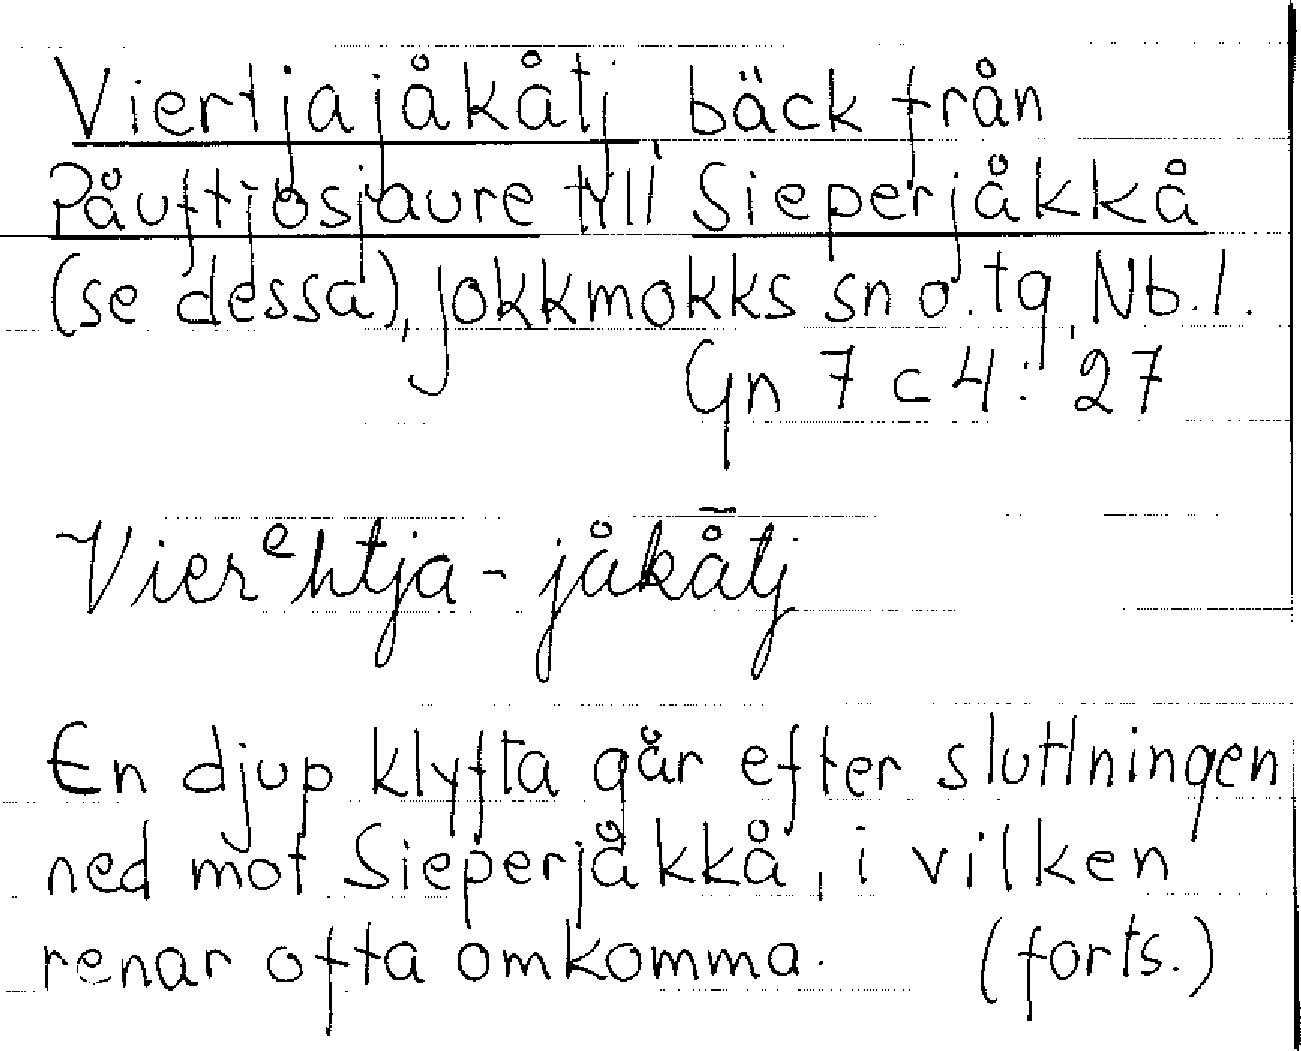 Viertjajåkåtj bäck från
Påuftjosjaure till Sieperjåkkå
(se dessa), jokkmokks sn o. tg, Nb. l.
Gn 7 c 4: 27
Vierᵉhtja - jåkå̄tj
En djup klyfta går efter sluttningen
ned mot Sieperjåkkå, i vilken
renar ofta omkomma. (forts.)